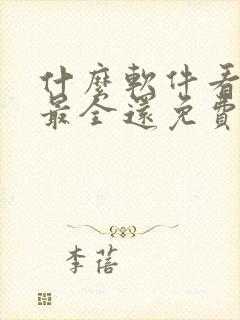 什麼軟件看
最全還免費
李蓓